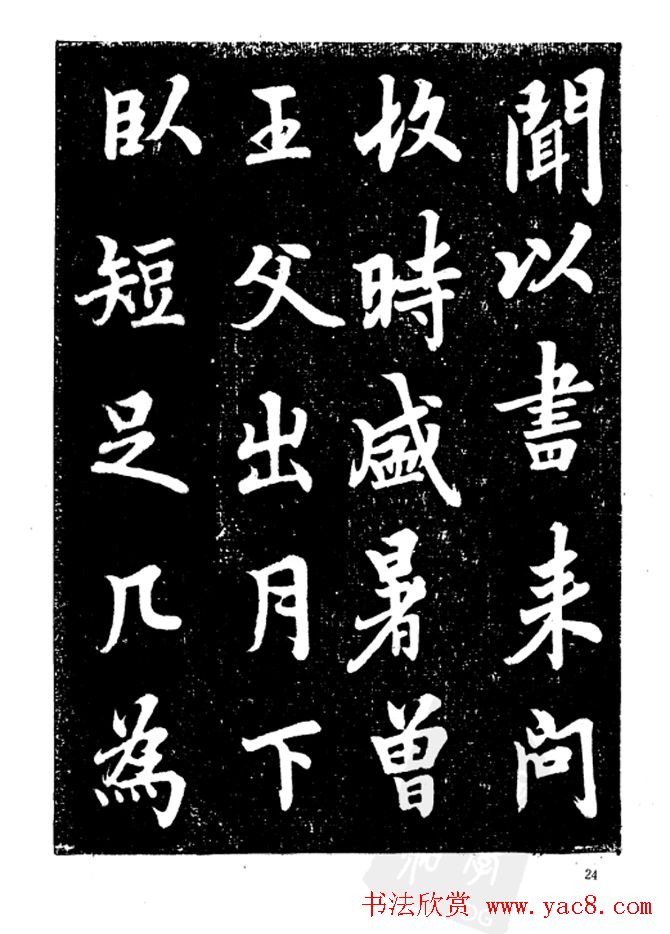 聞以書来问
故時盛暑曽
王父出月下
臥短足几為
24
书法欣赏 www.yac8.com